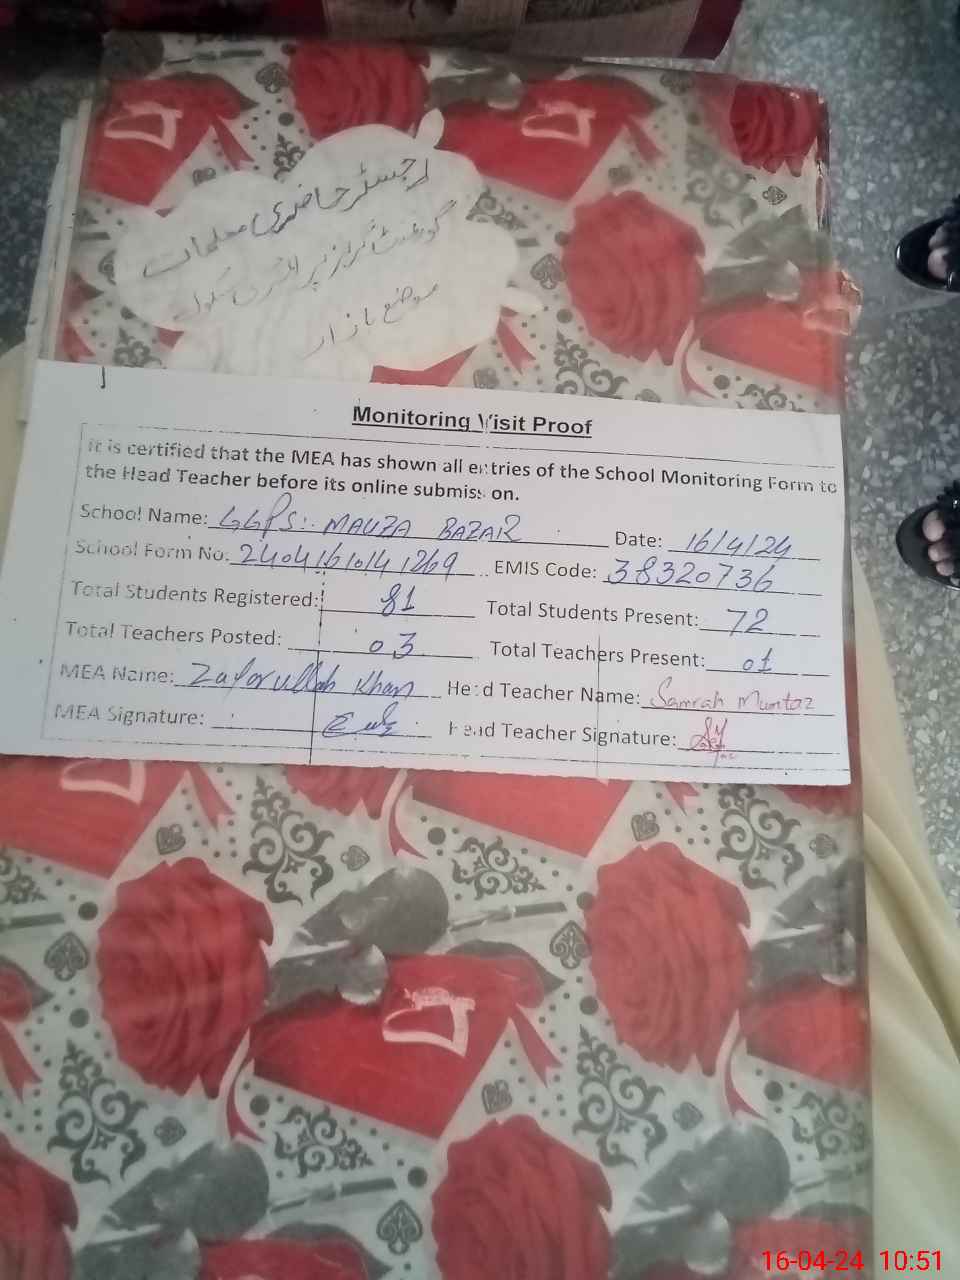 رجسٹر حاضری معلمات
گورنمنٹ گرلز پرائمری سکول
موضع بازار
Monitoring Visit Proof
It is certified that the MEA has shown all entries of the School Monitoring Form to
the Head Teacher before its online submission.
School Name: GGPS: MAUZA BAZAR Date: 16/4/24
School Form No: 2404161041269 EMIS Code: 38320736
Total Students Registered: 81 Total Students Present: 72
Total Teachers Posted: 03 Total Teachers Present: 01
MEA Name: Zafarullah Khan Head Teacher Name: Samrah Mumtaz
MEA Signature: Head Teacher Signature:
16-04-24 10:51